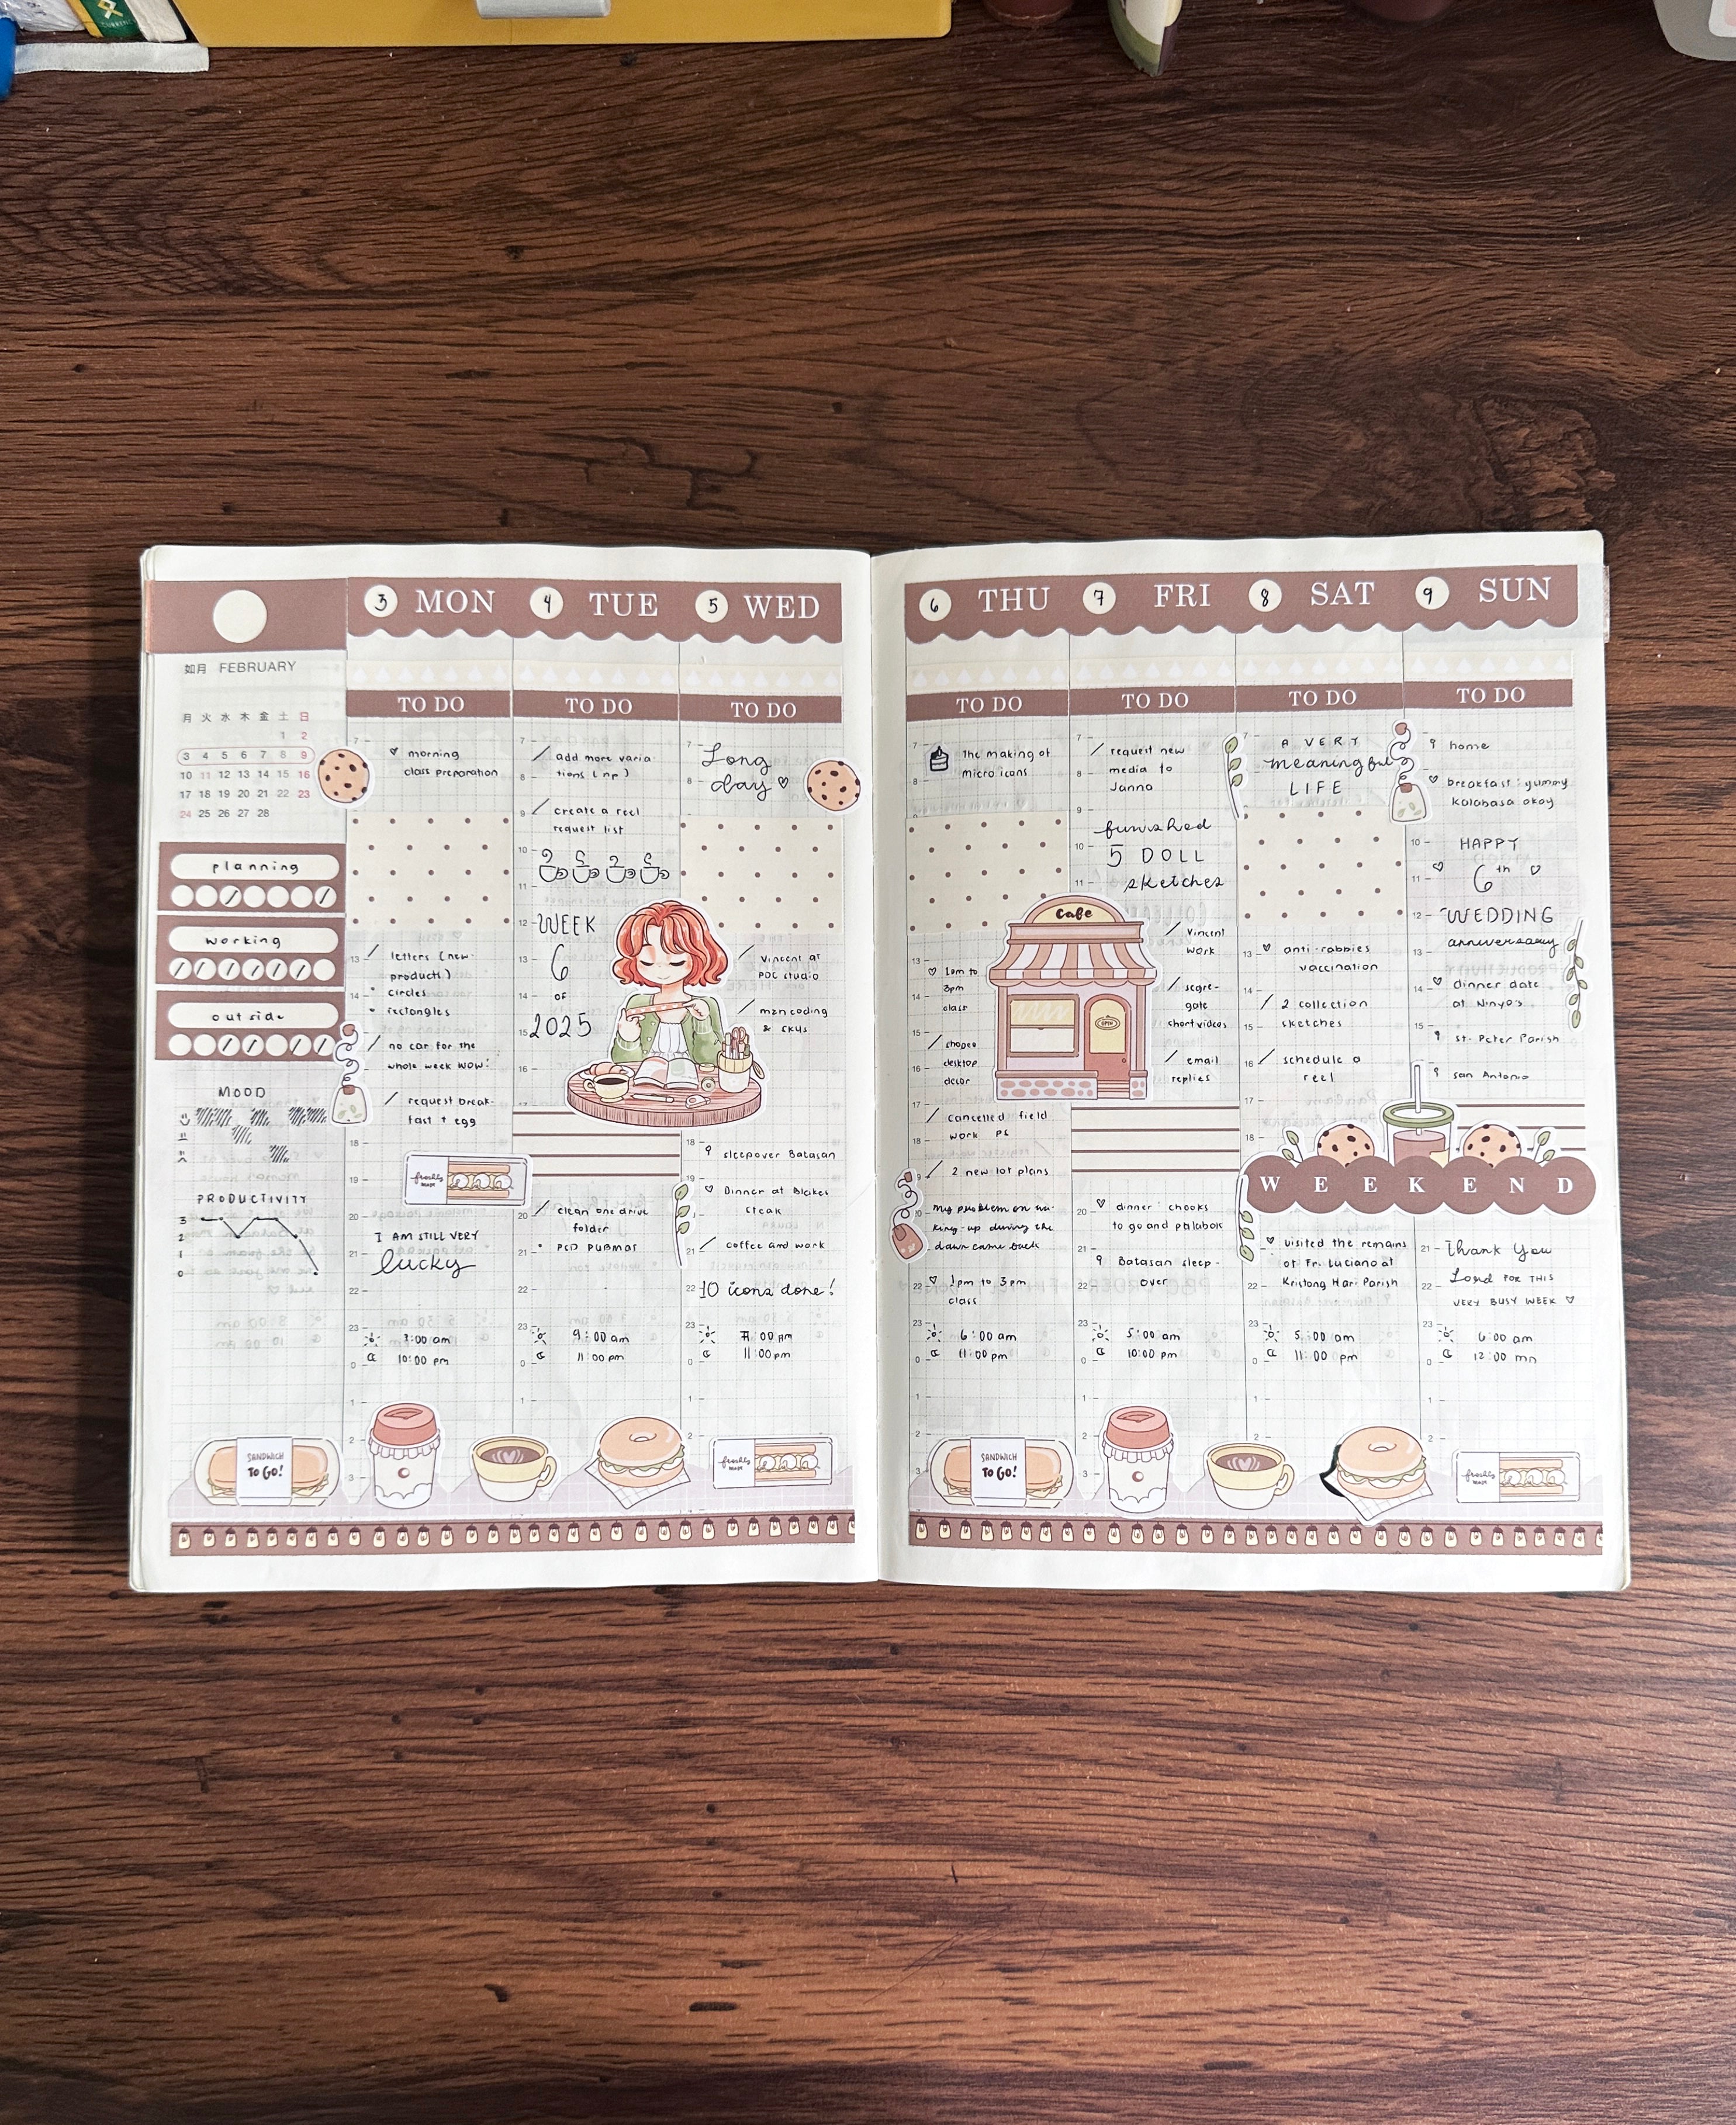 如月 FEBRUARY
月 火 水 木 金 土 日
1 2
3 4 5 6 7 8 9
10 11 12 13 14 15 16
17 18 19 20 21 22 23
24 25 26 27 28
planning
working
outside
MOOD
PRODUCTIVITY
3
2
1
0
3 MON
TO DO
morning
class preparation
letters (new
product)
circles
rectangles
no car for the
whole week wow!
request break-
fast + egg
freshly
MADE
I AM STILL VERY
lucky
7:00 am
10:00 pm
4 TUE
TO DO
add more varia
tions (np)
create a reel
request list
WEEK
6
OF
2025
clean onedrive
folder
PCD PUBMAT
9:00 am
11:00 pm
5 WED
TO DO
Long
day
Vincent at
PDC studio
mzn coding
& skus
sleepover Batasan
Dinner at Blakes
steak
coffee and work
10 icons done!
11:00 pm
6 THU
TO DO
The making of
micro icons
1pm to
3pm
class
shopee
desktop
decor
cancelled field
work PS
2 new lot plans
my problem on wa-
king-up during the
dawn came back
1pm to 3pm
class
6:00 am
11:00 pm
7 FRI
TO DO
request new
media to
Janna
finished
5 DOLL
sketches
Cafe
OPEN
Vincent
work
segre-
gate
short videos
email
replies
dinner: chooks
to go and palabok
Batasan sleep-
over
5:00 am
10:00 pm
8 SAT
TO DO
A VERY
meaningful
LIFE
anti-rabbies
vaccination
2 collection
sketches
schedule a
reel
WEEKEND
visited the remains
of Fr. Luciano at
Kristong Hari Parish
5:00 am
11:00 pm
9 SUN
TO DO
home
breakfast: yummy
kalabasa okoy
HAPPY
6th
WEDDING
anniversary
dinner date
at Ninyo's
St. Peter Parish
San Antonio
Thank You
Lord FOR THIS
VERY BUSY WEEK
6:00 am
12:00 mn
SANDWICH
TO GO!
freshly
MADE
SANDWICH
TO GO!
freshly
MADE